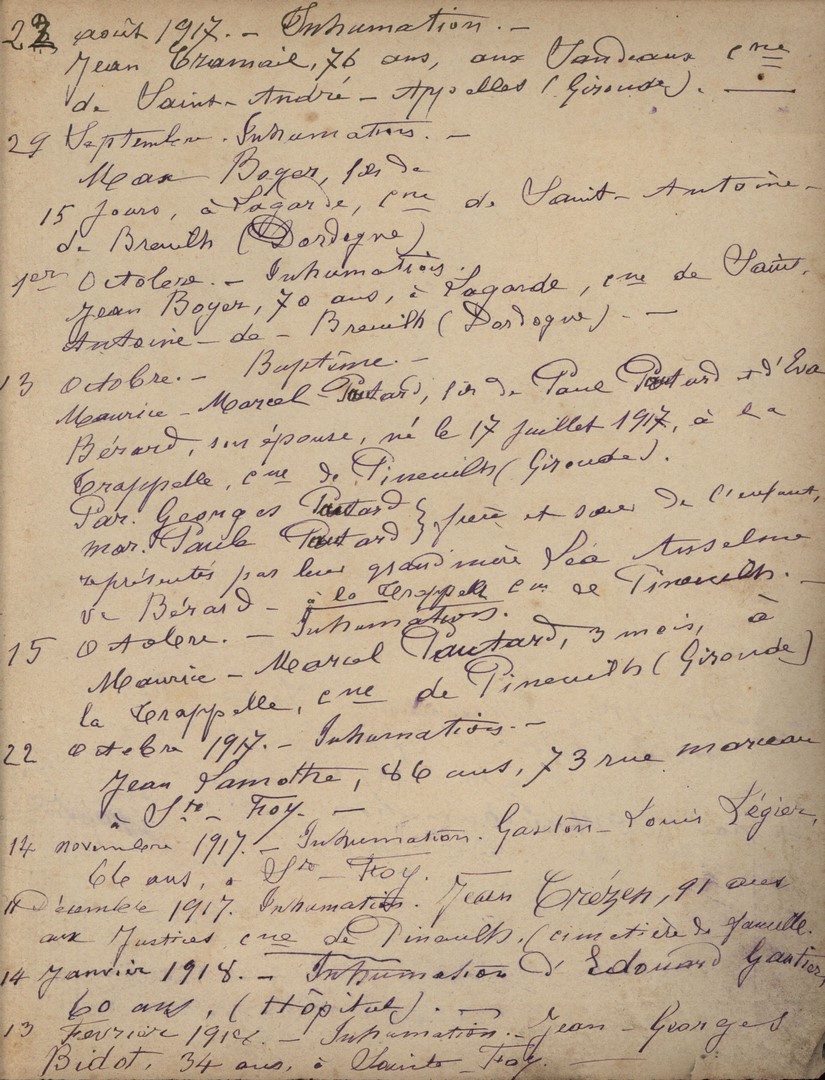 22 août 1917. - Inhumation. -
Jean Tramail, 76 ans, aux Vandeaux cne
de Saint-André-Appelles (Gironde). -
29 Septembre. Inhumation. -
Max Boyer, fils de
15 jours, à Lagarde, cne de Saint-Antoine-
de Breuilh (Dordogne)
1er Octobre. - Inhumation.
Jean Boyer, 70 ans, à Lagarde, cne de Saint-
Antoine-de-Breuilh (Dordogne). -
13 Octobre. - Baptême. -
Maurice-Marcel Pautard, fils de Paul Pautard et d'Eva
Bérard, son épouse, né le 17 juillet 1917, à la
Trappelle, cne de Pineuilh (Gironde).
Par. Georges Pautard
mar. Paule Pautard } frère et sœur de l'enfant,
représentés par leur grand'mère Léa Anselme
ve Bérard - à la Trappelle cne de Pineuilh. -
15 Octobre. - Inhumation.
Maurice-Marcel Pautard, 3 mois, à
la Trappelle, cne de Pineuilh (Gironde)
22 Octobre 1917. - Inhumation. -
Jean Lamothe, 86 ans, 73 rue Marceau
à Ste-Foy. -
14 novembre 1917. - Inhumation. Gaston-Louis Légier,
66 ans, à Ste-Foy.
11 Décembre 1917. Inhumation. Jean Trézen, 91 ans
aux Justices cne de Pineuilh. (cimetière de famille.
14 Janvier 1918. - Inhumation d'Edouard Gautier,
60 ans, (Hôpital). -
13 Février 1918. - Inhumation. - Jean-Georges
Bidot, 34 ans, à Sainte-Foy. -